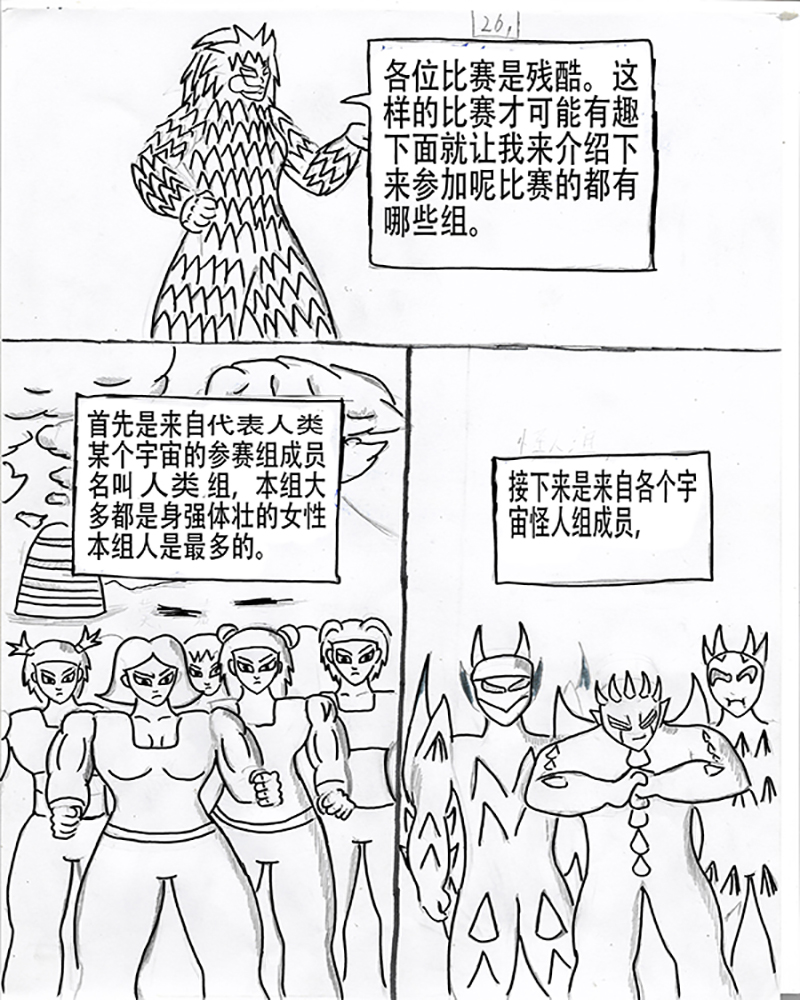 26,
各位比赛是残酷。这
样的比赛才可能有趣
下面就让我来介绍下
来参加呢比赛的都有
哪些组。
首先是来自代表人类
某个宇宙的参赛组成员
名叫人类组，本组大
多都是身强体壮的女性
本组人是最多的。
接下来是来自各个宇
宙怪人组成员，